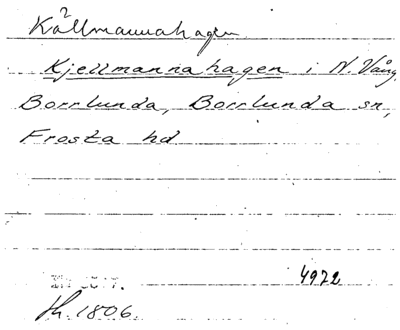 Källmannahagen
Kjellmannahagen i N. Vång,
Borrlunda, Borrlunda sn,
Frosta hd
4972
1806.